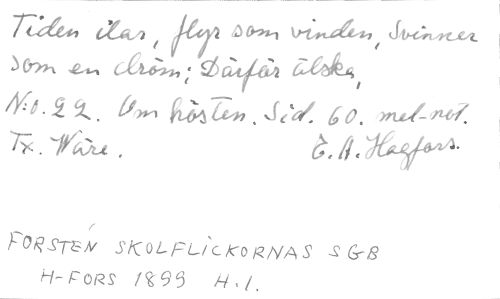 Tiden ilar, flyr som vinden, Svinner
som en dröm; Därför älska,
N:o. 22. Om hösten. Sid. 60. mel-not.
Tx. Wäre. E. A. Hagfors.
FORSTÉN SKOLFLICKORNAS SGB
H-FORS 1899 H.1.